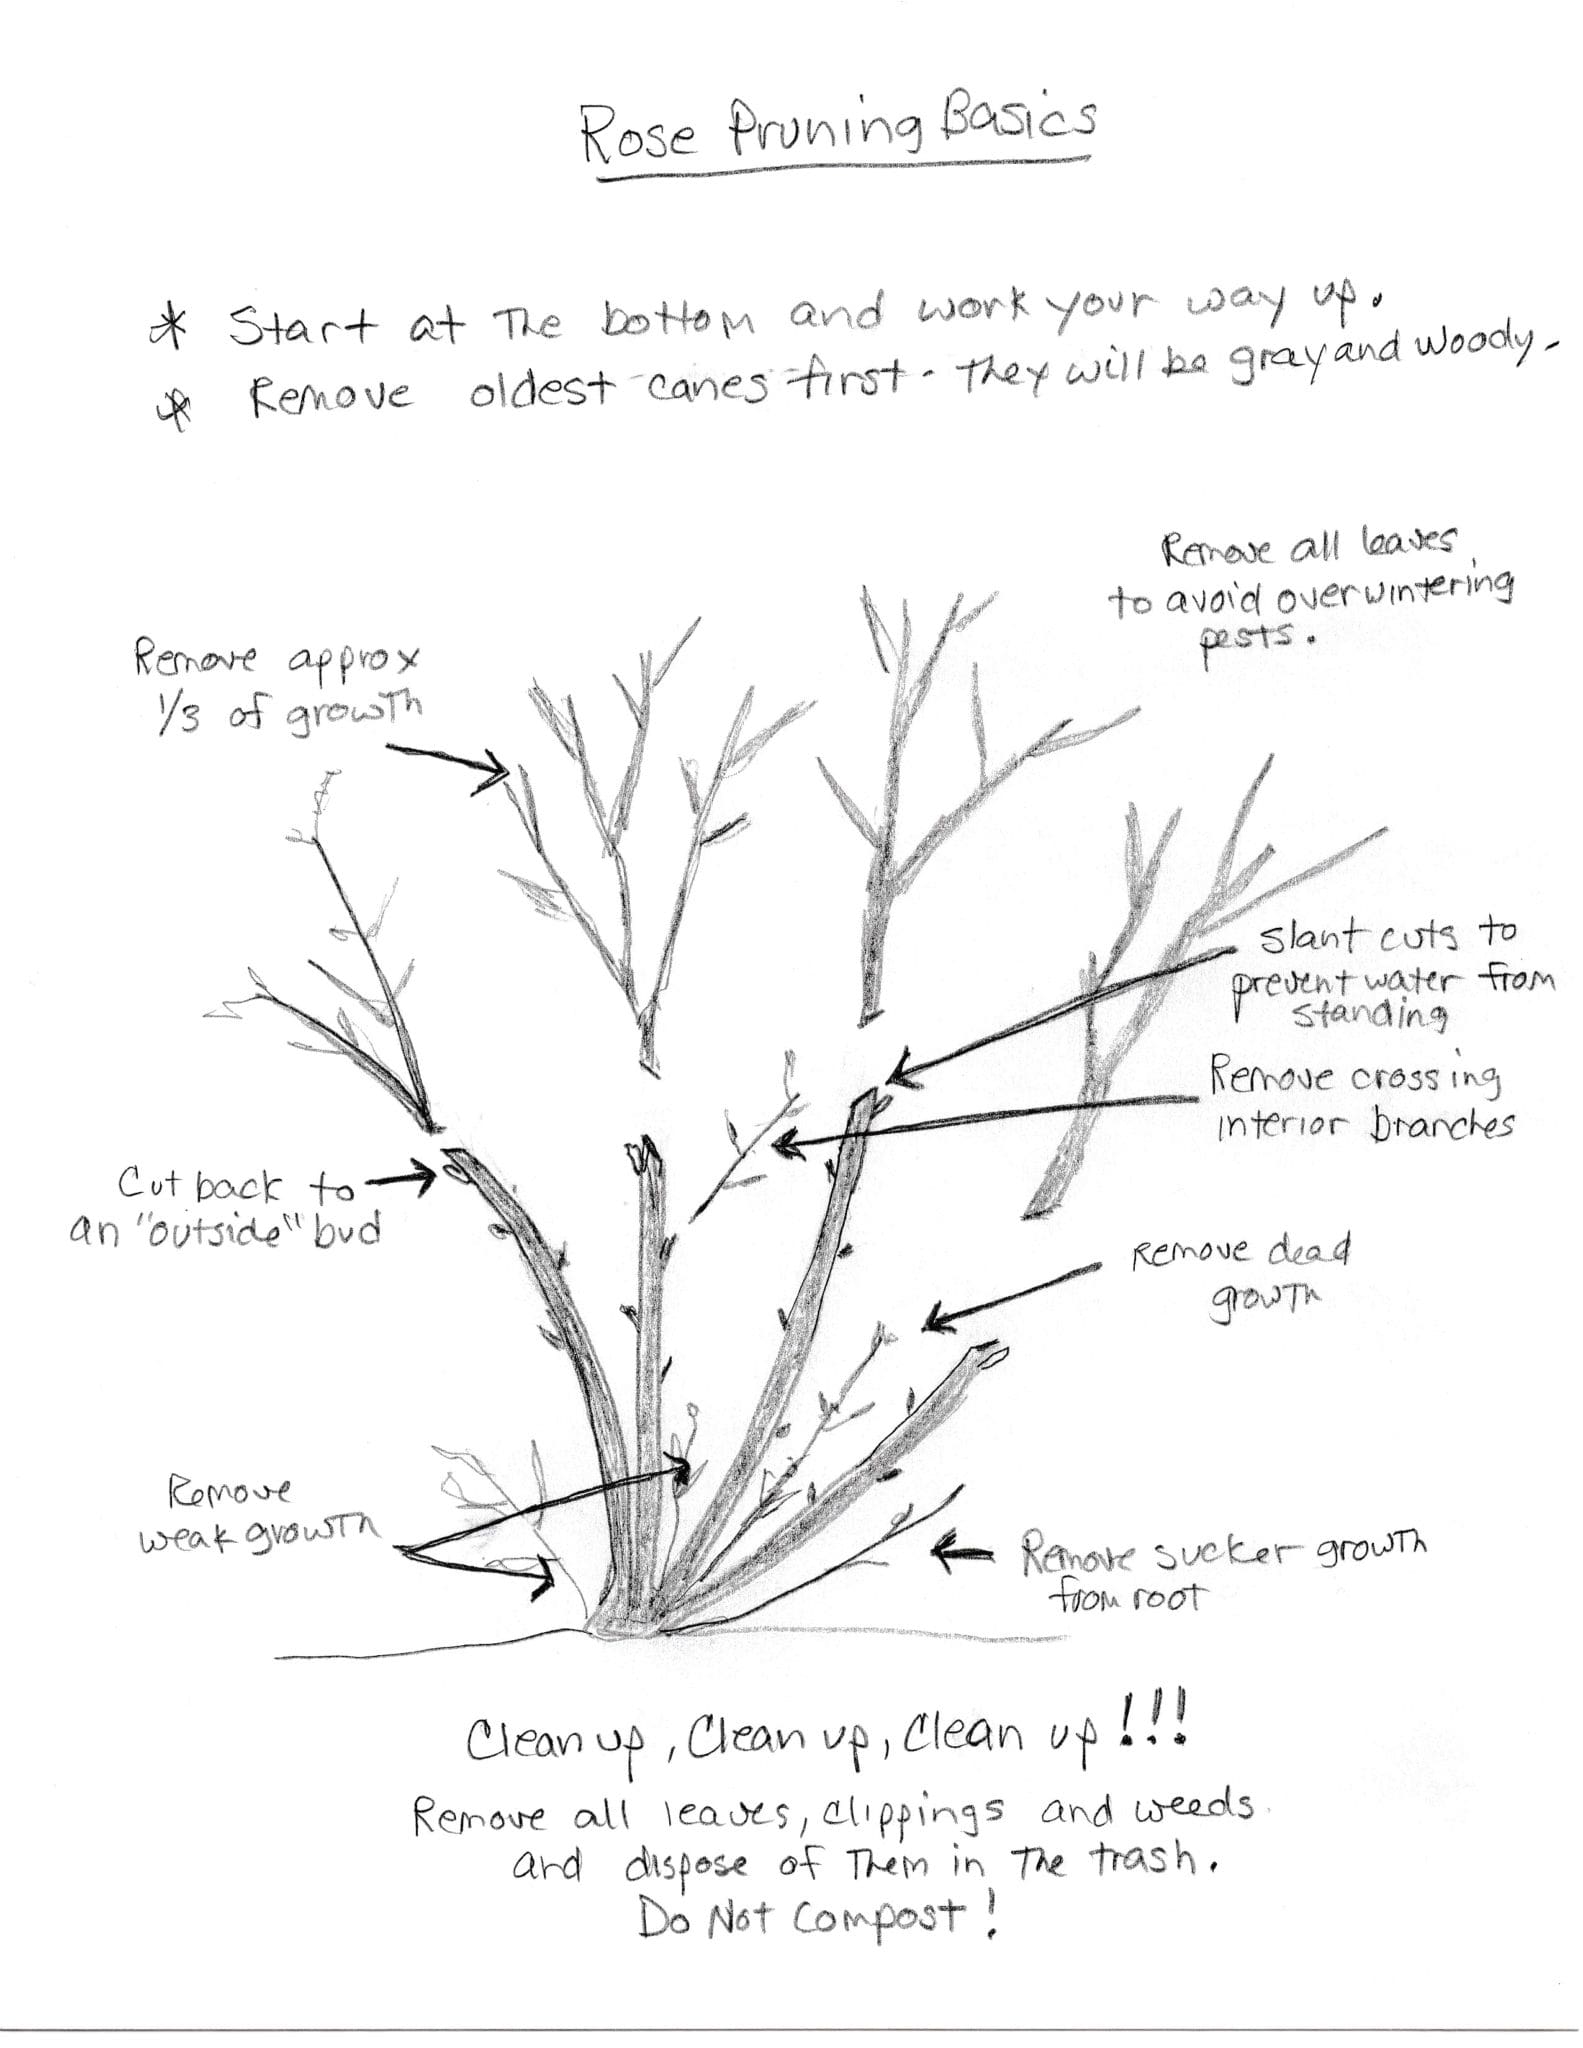 Rose Pruning Basics
* Start at The bottom and work your way up.
* Remove oldest canes first. They will be gray and woody.
Remove all leaves
to avoid overwintering
pests.
Remove approx
1/3 of growth
Slant cuts to
prevent water from
standing
Remove crossing
interior branches
Cut back to
an "outside" bud
Remove dead
growth
Remove
weak growth
Remove sucker growth
from root
Clean up, Clean up, Clean up!!!
Remove all leaves, clippings and weeds
and dispose of Them in The trash.
Do Not Compost!